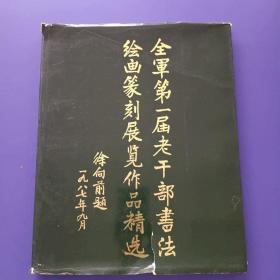 全軍第一届老干部書法
绘画篆刻展览作品精选
徐向前題
一九八七年九月